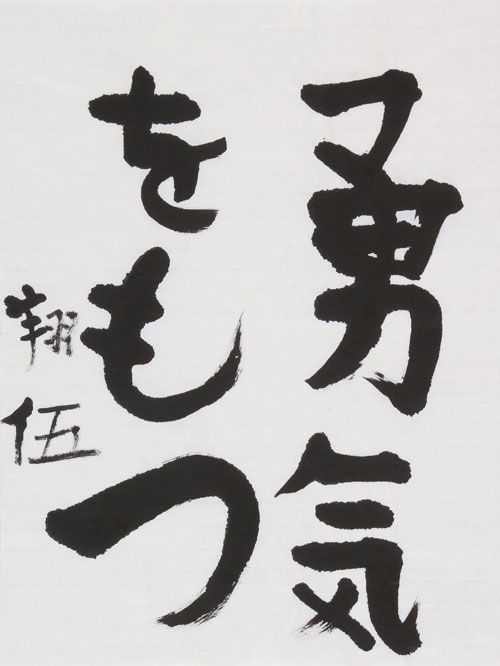 勇気
をもつ
翔伍